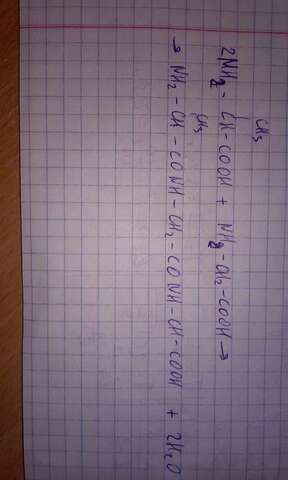 CH3
2NH2 - CH-COOH + NH2-CH2-COOH →
CH3
→ NH2 - CH - CONH - CH2 - CONH - CH - COOH + 2H2O